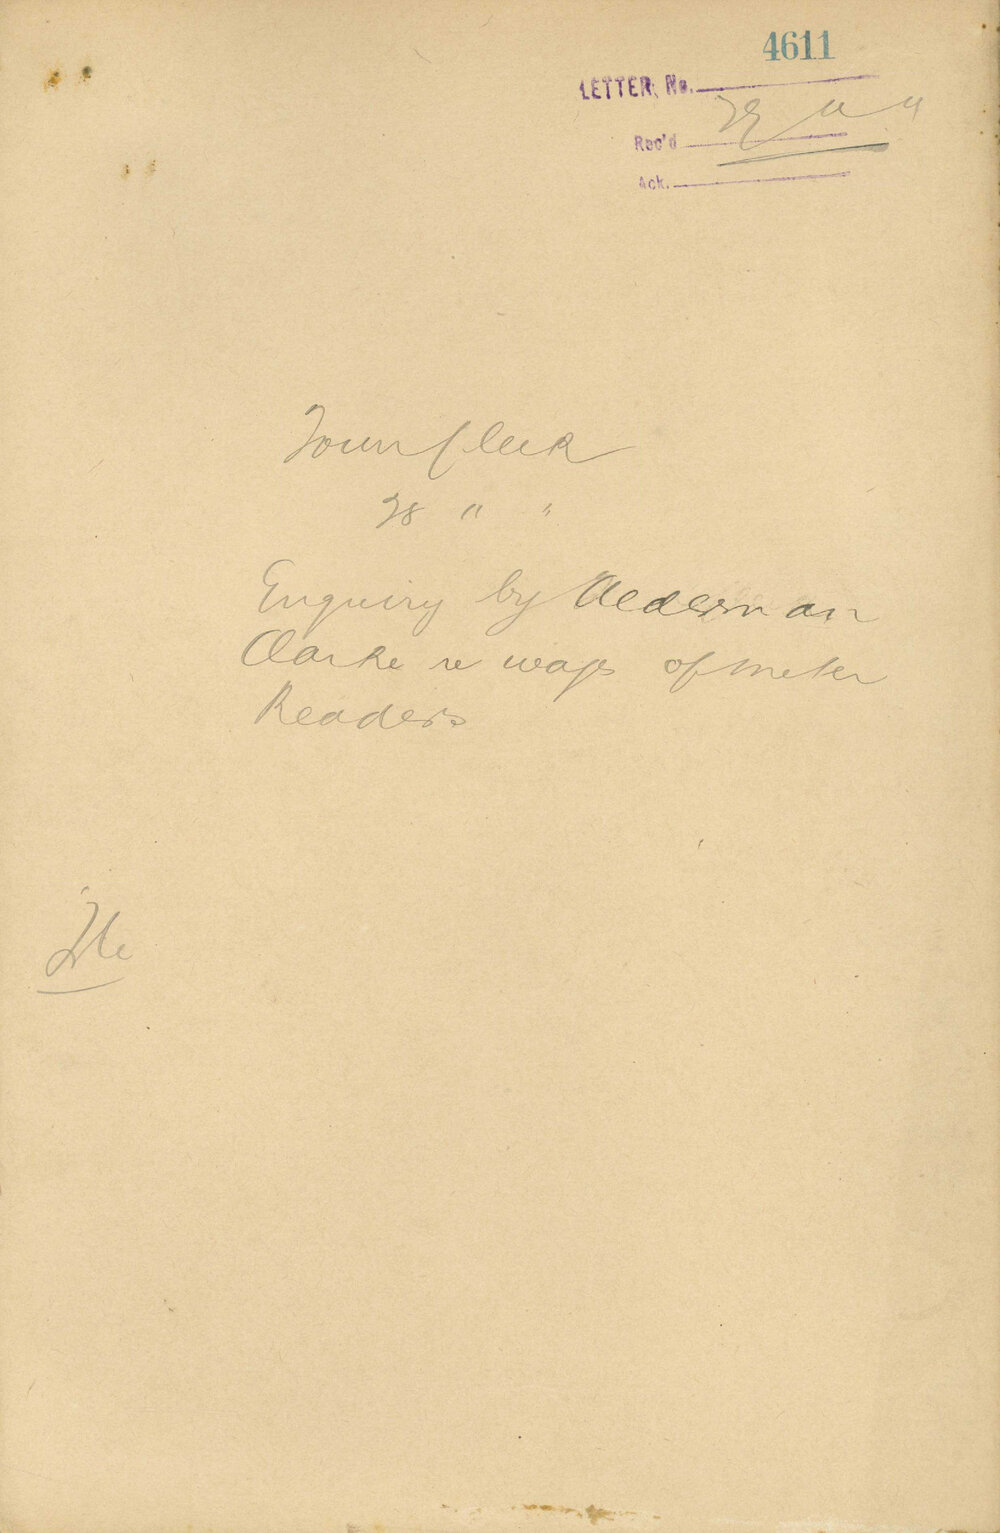 4611
LETTER, No.
Rec'd 29 " "
Ack.
Town Clerk
28 " "
Enquiry by Alderman
Clarke re wages of meter
Readers
File